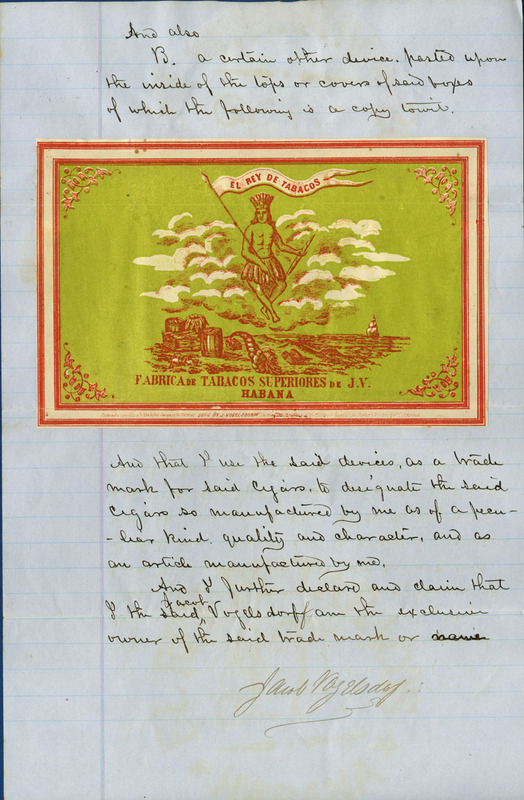 And also
B. a certain other device, pasted upon
the inside of the tops or covers of said boxes
of which the following is a copy towit.
EL REY DE TABACOS
FABRICA DE TABACOS SUPERIORES DE J.V.
HABANA
And that I use the said devices, as a trade
mark for said cigars, to designate the said
cigars so manufactured by me as of a pecu-
-liar kind, quality and character, and as
an article manufactured by me.
And I further declare and claim that
I the said Jacob Vogelsdorff am the exclusive
owner of the said trade mark or name
Jacob Vogelsdorf